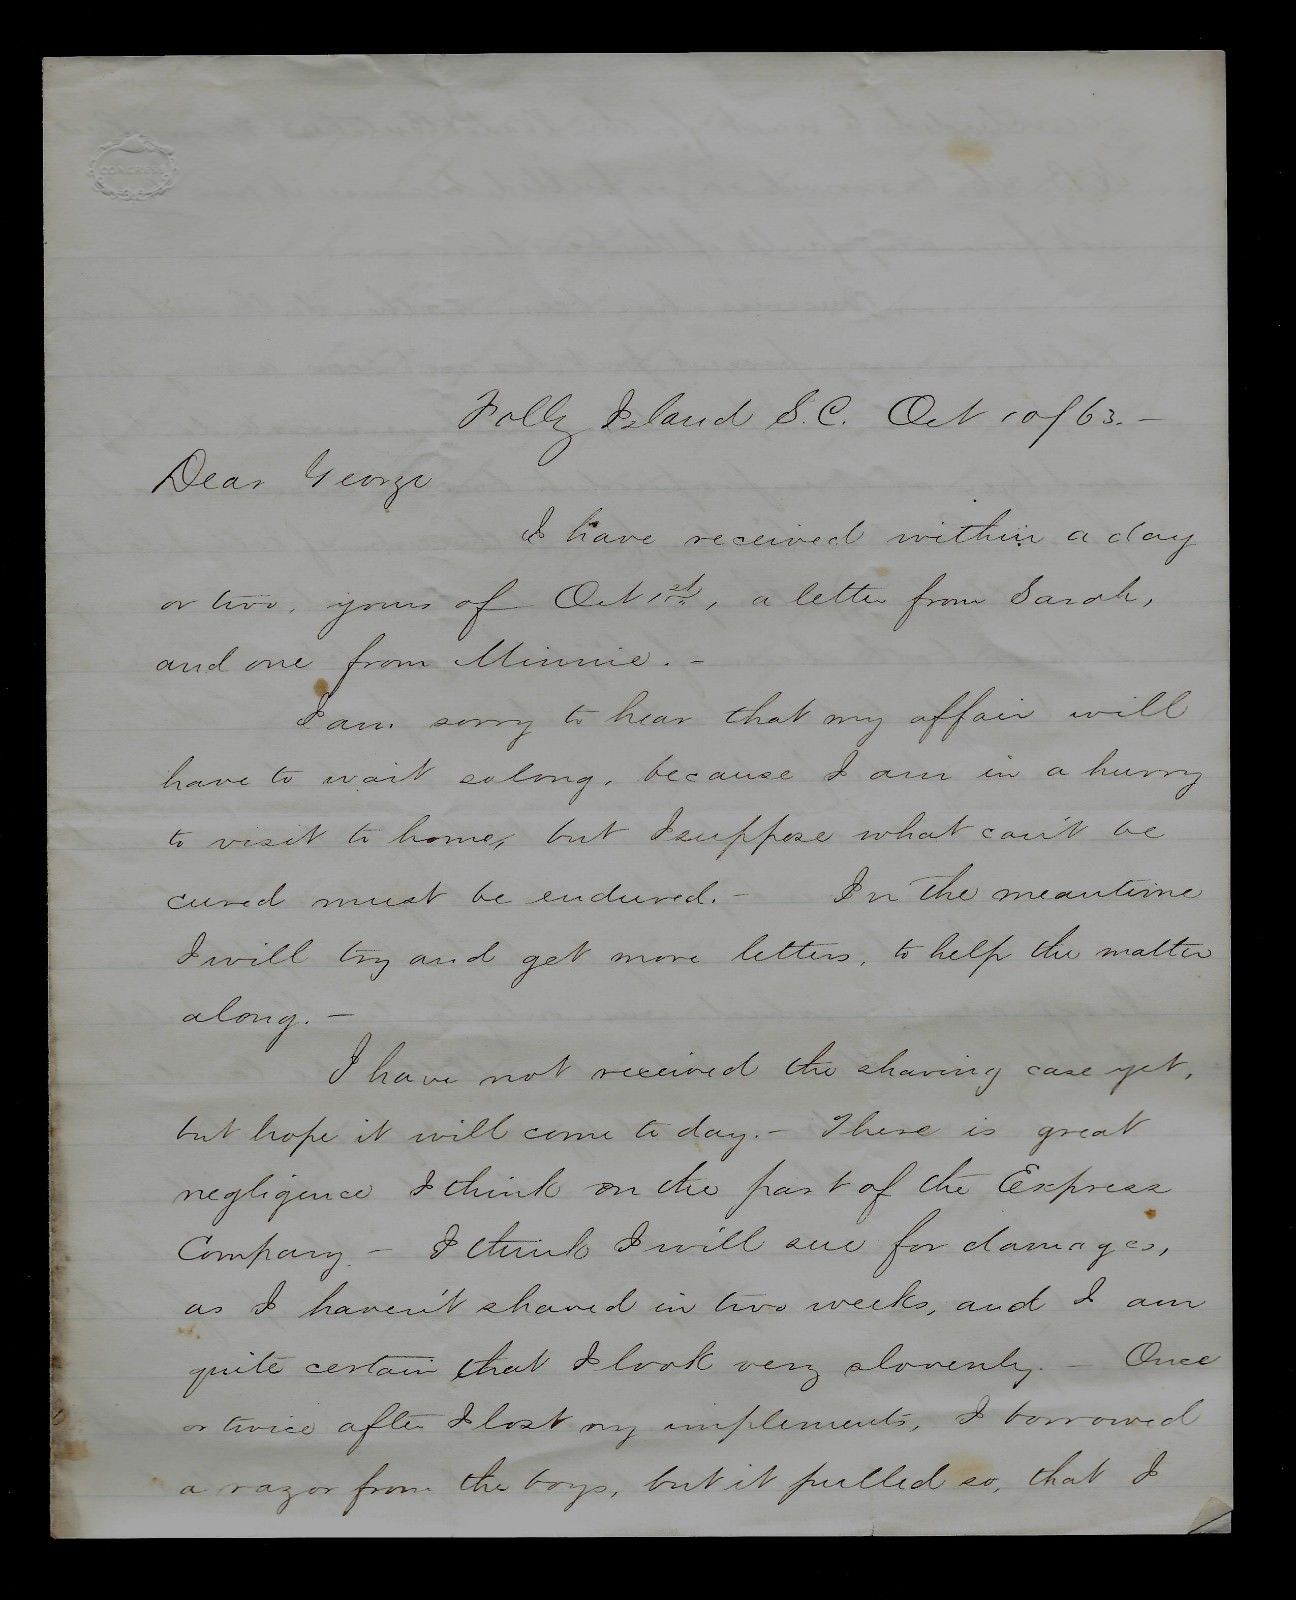 CONGRESS
Folly Island S.C. Oct 10/63. -
Dear George
I have received within a day
or two, yours of Oct 1st, a letter from Sarah,
and one from Minnie. -
I am sorry to hear that my affair will
have to wait solong, because I am in a hurry
to visit to home, but I suppose what can't be
cured must be endured. - In the meantime
I will try and get more letters, to help the matter
along. -
I have not received the shaving case yet,
but hope it will come to day. - There is great
negligence I think on the part of the Express
Company - I think I will sue for damages,
as I haven't shaved in two weeks, and I am
quite certain that I look very slovenly. - Once
or twice after I lost my implements, I borrowed
a razor from the boys, but it pulled so, that I